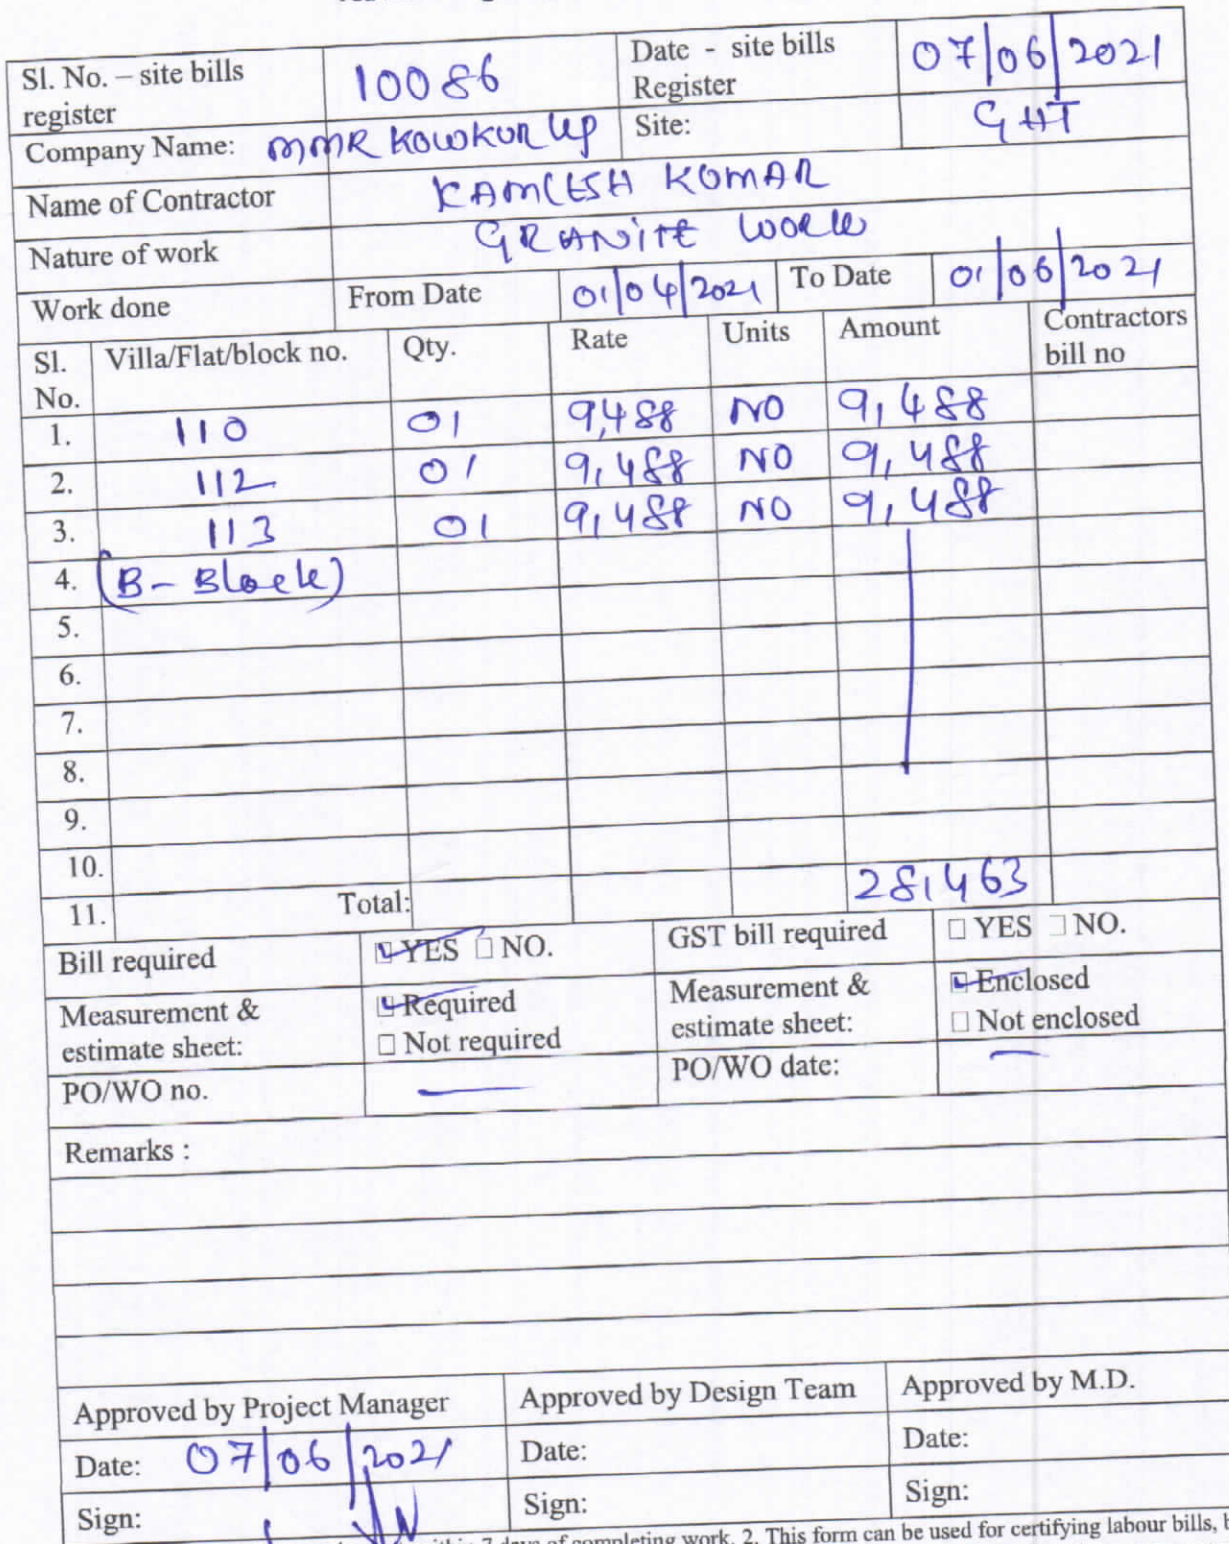 Sl. No. – site bills register 10086 Date - site bills Register 07/06/2021
Company Name: MMR KOWKUR LLP Site: GHT
Name of Contractor KAMLESH KUMAR
Nature of work GRANITE WORK
Work done From Date 01/04/2021 To Date 01/06/2021
Sl. No. Villa/Flat/block no. Qty. Rate Units Amount Contractors bill no
1. 110 01 9,488 NO 9,488
2. 112 01 9,488 NO 9,488
3. 113 01 9,488 NO 9,488
4. (B - Block)
5.
6.
7.
8.
9.
10.
11. Total: 28,463
Bill required YES NO. GST bill required YES NO.
Measurement & estimate sheet: Required Not required Measurement & estimate sheet: Enclosed Not enclosed
PO/WO no. — PO/WO date: —
Remarks :
Approved by Project Manager Approved by Design Team Approved by M.D.
Date: 07/06/2021 Date: Date:
Sign: Sign: Sign:
7 days of completing work. 2. This form can be used for certifying labour bills,